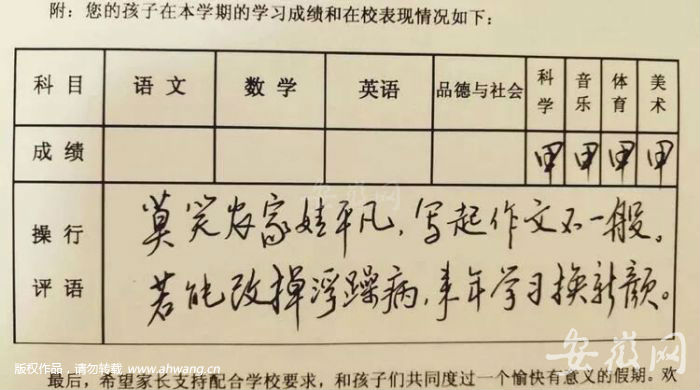 附：您的孩子在本学期的学习成绩和在校表现情况如下：
科目 语文 数学 英语 品德与社会 科学 音乐 体育 美术
成绩 甲 甲 甲 甲
操行评语
莫笑农家娃平凡，写起作文不一般。
若能改掉浮躁病，来年学习换新颜。
安徽网
安徽网
版权作品，请勿转载 www.ahwang.cn
最后，希望家长支持配合学校要求，和孩子们共同度过一个愉快有意义的假期。欢